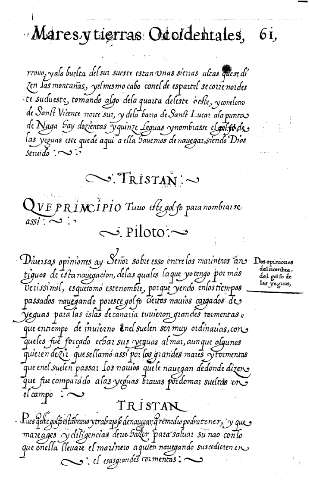 Mares y tierras Occidentales, 61,
rreuo, y a la buelta del sur sueste estan vnas sierras altas que se di
zen las montañas, y el mismo cabo
te sudueste, tomando algo de la quarta del este
de Sanct Vicente norte sur, y de la barra de Sanct Lucar a la punta
de Naga hay dozientas y quinze leguas y nombrasse el golfo de
las yeguas este que de aqui a ella hauemos de nauegar siendo Dios
seruido.
TRISTAN
QVE PRINCIPIO Tuuo este golfo para nombrarse
assi
Piloto
Diuersas opiniones ay Señor sobre esso entre los marineros an
tiguos de esta nauegacion, de las quales la que yo tengo por mas
verissimil, es que tomo este nombre, porque yendo en los tiempos
passados nauegando por este golfo ciertos nauios cargados de
yeguas para las islas de canaria tuuieron grandes tormentas
que en tiempo de inuierno en el suelen ser muy ordinarias, con
que les fue forçado echar sus yeguas al mar, aunque algunos
quieren dezir que se llamo assi por los grandes mares y tormentas
que en el suelen passar los nauios que le nauegan de donde dizen
que fue comparado a las yeguas brauas por domar sueltas en
el campo
Dos opiniones
del nombre
del golfo de
las yeguas,
TRISTAN
Pues que
mareages y diligencias deue hazer para saluar su nao con lo
que en ella lleuare el marinero a quien nauegando
el essas grandes tormentas